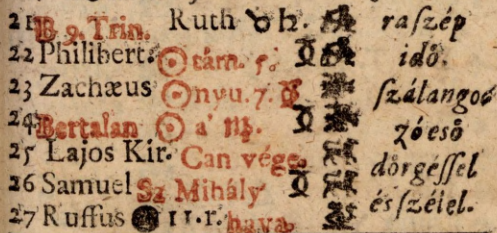 21 B 9. Trin. Ruth ♉ ♄. ra szép
22 Philibert. ☉ tám. 5. idő.
23 Zachæus ☉ nyu. 7. szálangos
24 Bertalan ☉ a' ♍. zó eső
25 Lajos Kir. Can vége. dörgéssel
26 Samuel Sz Mihály és széiel.
27 Ruffus ● 11. r. hava.